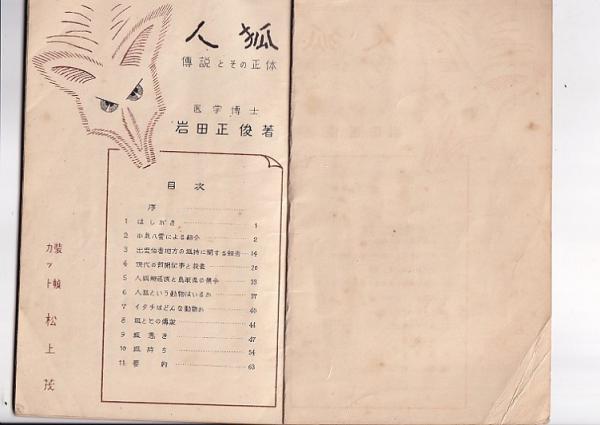 人狐
傳説とその正体
医学博士
岩田正俊著
目次
序
1 はしがき 1
2 小泉八雲による紹介 2
3 出雲伯耆地方の狐持に関する報告 14
4 現代の新聞記事と投書
5 人狐
6 人狐という動物はいるか 37
7 イタチはどんな動物か 40
8 狐とその傳説 44
9 狐憑き 47
10 狐持ち 54
11 要約 63
装幀
カット
松上茂